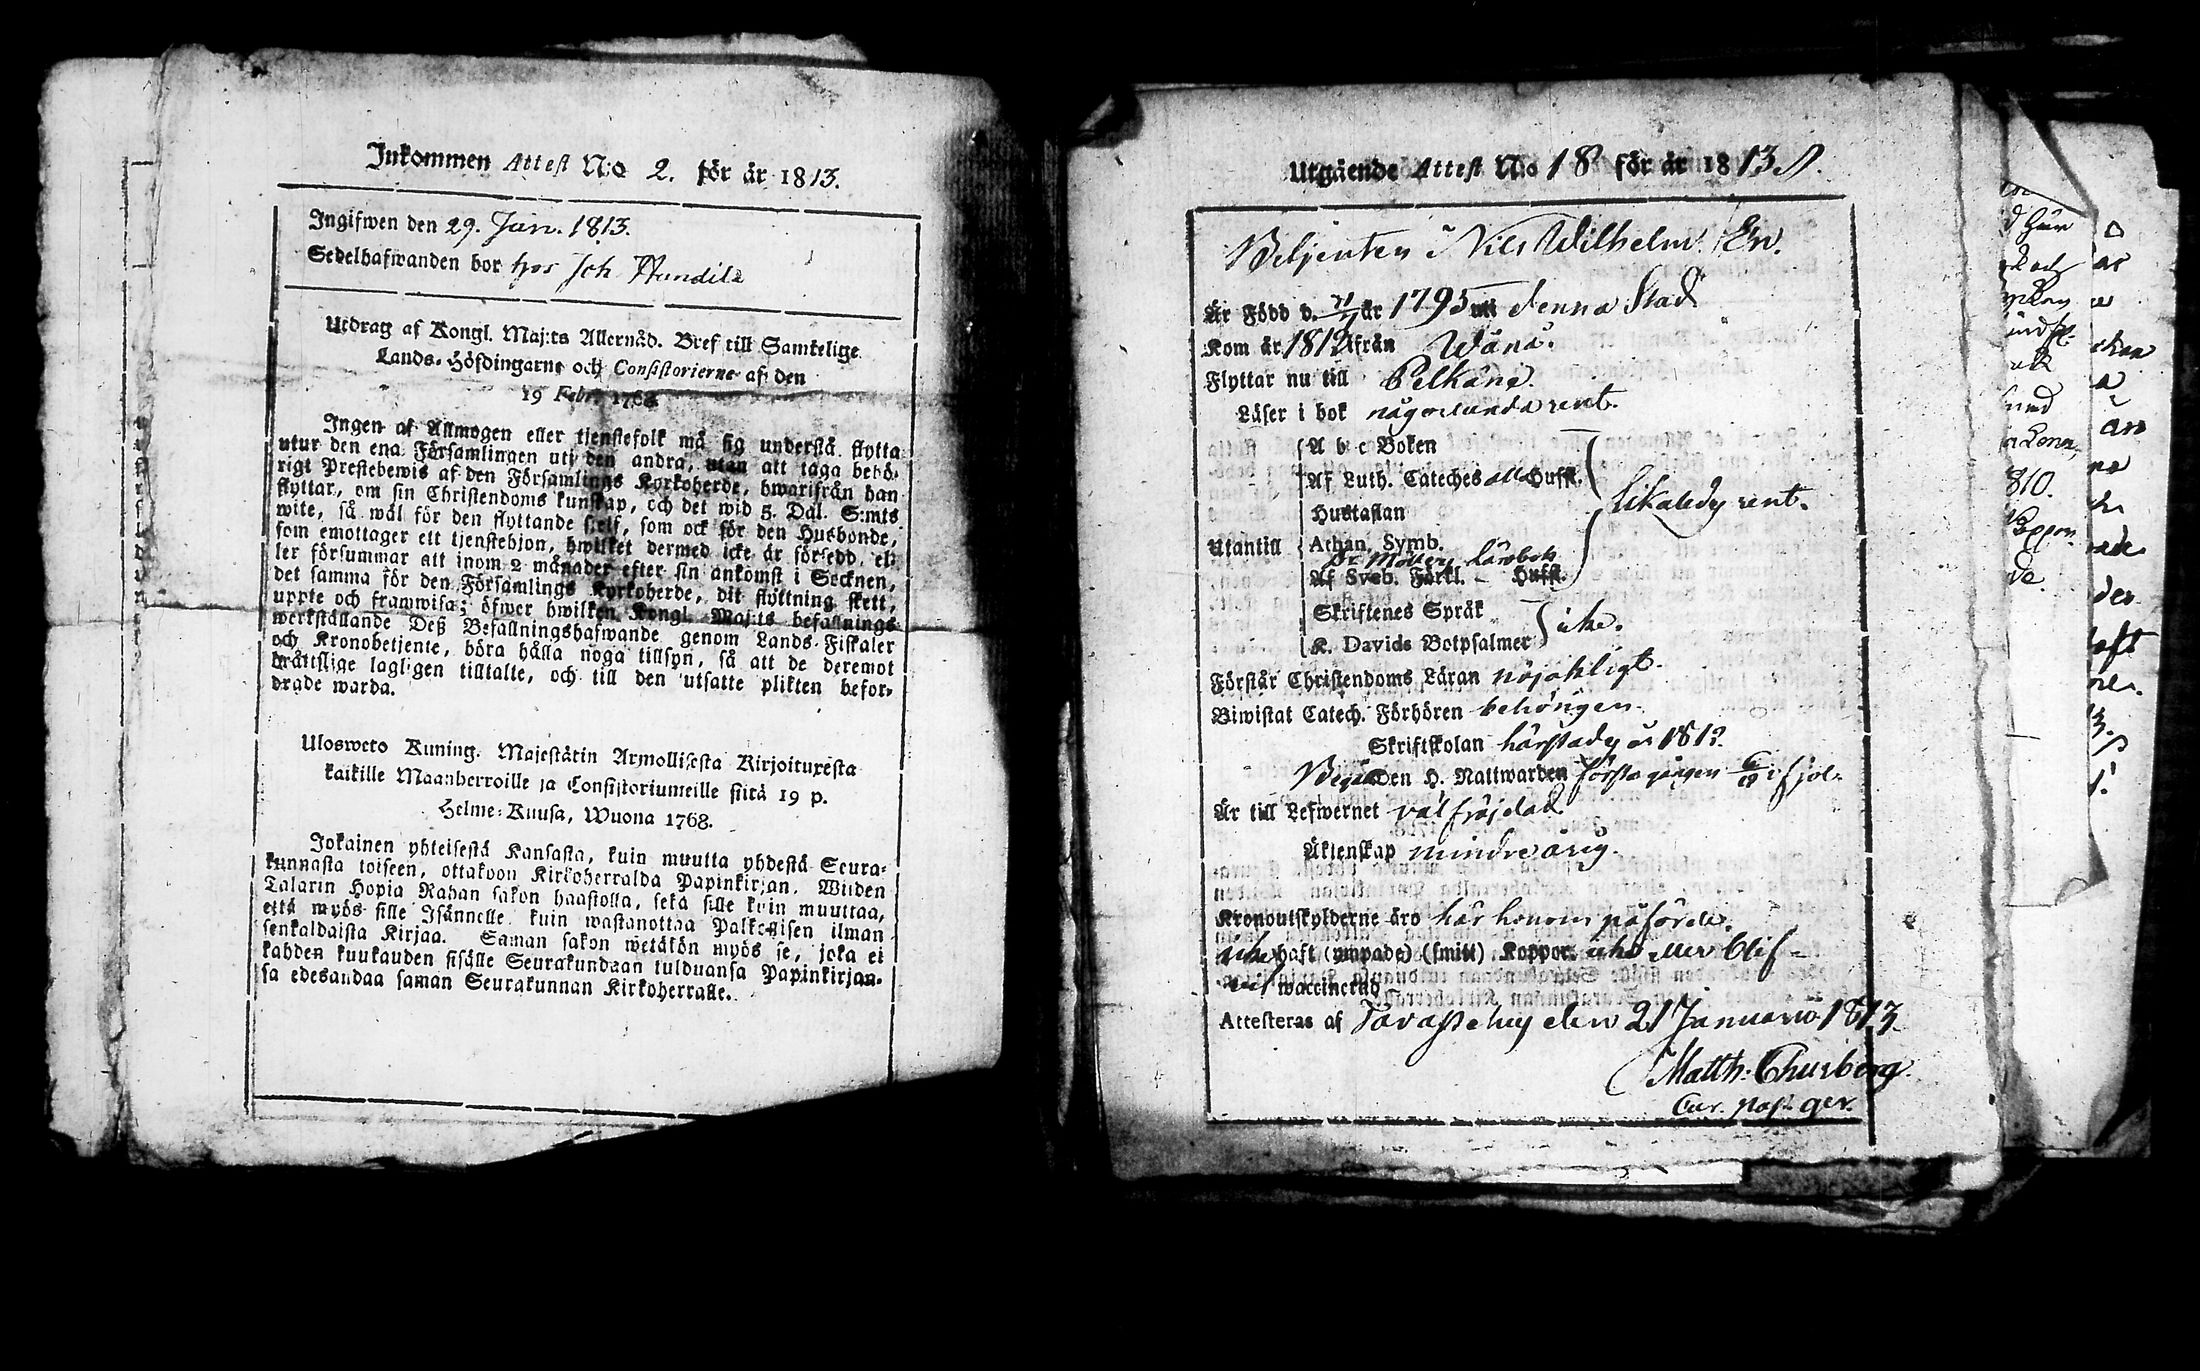 Inkommen Attest N:o 2. för är 1813.
Ingifwen den 29. Jan. 1813.
Sedelhafwanden bor hos Joh Hundila
Utdrag af Kongl. Maj:ts Allernåd. Bref till Samtelige
Lands-Höfdingarne och Consistorierne af den
19 Febr. 1768.
Ingen af Allmogen eller tjenstefolk må sig understå flytta
utur den ena Församlingen uti den andra, utan att taga behö-
rigt Prestebewis af den Församlings Kyrkoherde, hwarifrån han
flyttar, om sin Christendoms kunskap, och det wid 5. Dal. S:mts
wite, så wäl för den flyttande sjelf, som ock för den Husbonde,
som emottager ett tjenstehjon, hwilket dermed icke är försedd, el-
ler försummar att inom 2 månader efter sin ankomst i Socknen,
det samma för den Församlings Kyrkoherde, dit flyttning skett,
uppte och framwisa; öfwer hwilken Kongl. Maj:ts befallnings
werkställande Deß Befallningshafwande genom Lands-Fiskaler
och Kronobetjente, böra hålla noga tillsyn, så att de deremot
bråttslige lagligen tilltalte, och till den utsatte plikten befor-
drade warda.
Ulosweto Kuning. Majestätin Armollisesta Kirjoituxesta
kaikille Maanherroille ja Consistoriumeille siitä 19 p.
Helme-Kuusa, Wuona 1768.
Jokainen yhteisestä Kansasta, kuin muutta yhdestä Seura-
kunnasta toiseen, ottakoon Kirkoherralda Papinkirjan, Wiiden
Talarin Hopia Rahan sakon haastolla, sekä sille kuin muuttaa,
että myös sille Isännelle kuin wastanottaa Palkollisen ilman
senkaldaista Kirjaa. Saman sakon wetäkön myös se, joka ei
kahden kuukauden sisälle Seurakundaan tulduansa Papinkirjan-
sa edesandaa saman Seurakunnan Kirkoherralle.
Utgäende Attest N:o 18 för är 1813
Betjenten Nils Wilhelm En.
Är Född d. är 1795 uti denna Stad
Kom är 1812 ifrån Wånå.
Flyttar nu till Pelkäne.
Läser i bok någorlunda rent.
A b c Boken
Af Luth. Cateches alla Hufst.
Hustaflan
likaledes rent.
Utantill
Athan. Symb.
Dr Möllers Lärobok
Af Sveb. Förkl. Hufst.
Skriftenes Språk
K. Davids Botpsalmer
icke.
Förstår Christendoms Läran nöjaktigt.
Biwistat Catech. Förhören behörigen.
Skriftskolan härstädes år 1812.
Begått den H. Nattwarden första gången i fjol.
Är till Lefwernet välfräjdad
Äktenskap minderårig.
Kronoutskylderne äro här honom påförde.
icke haft (ympade) (smitt) Koppor
waccinerad
Attesteras af Tavastehus den 21 Januario 1813.
Matth: Churberg
Cur. past. ger.
810.